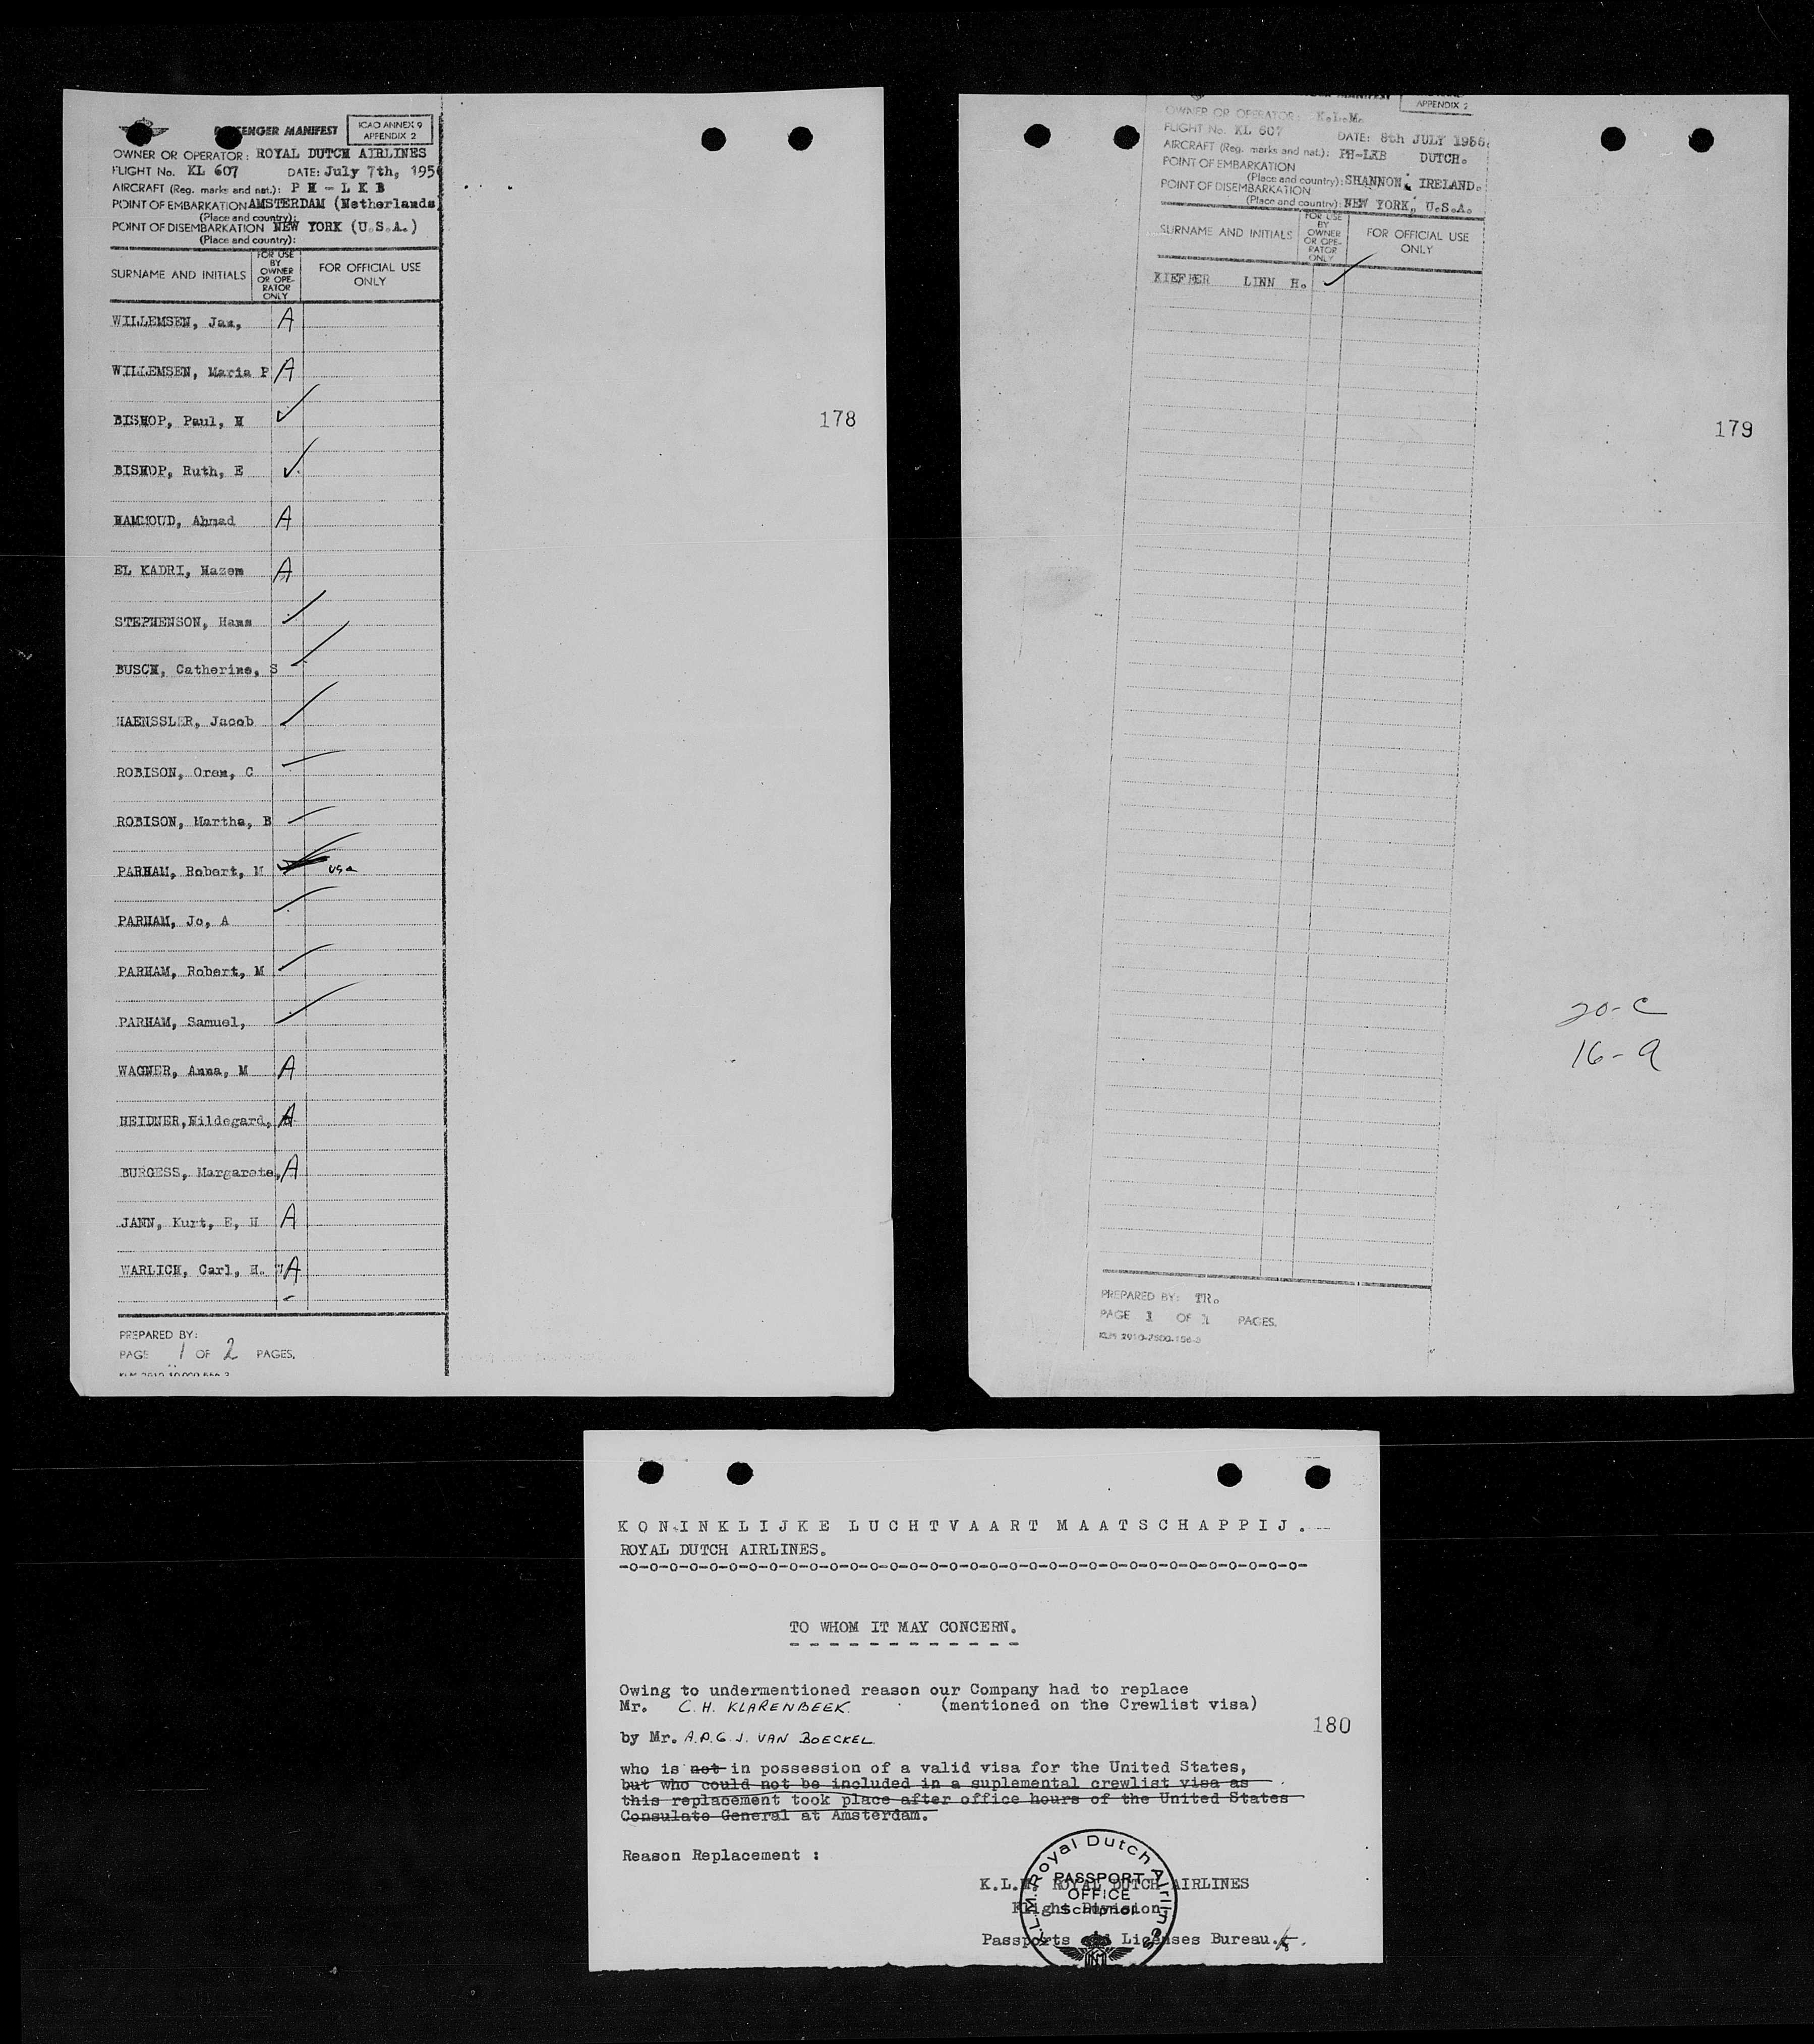 PASSENGER MANIFEST
ICAO ANNEX 9
APPENDIX 2
OWNER OR OPERATOR: ROYAL DUTCH AIRLINES
FLIGHT No. KL 607 DATE: July 7th, 195
AIRCRAFT (Reg. marks and nat.): P H - L K B
POINT OF EMBARKATION AMSTERDAM (Netherlands)
(Place and country):
POINT OF DISEMBARKATION NEW YORK (U.S.A.)
(Place and country):
SURNAME AND INITIALS
FOR USE BY OWNER OR OPE-RATOR ONLY
FOR OFFICIAL USE ONLY
WILLEMSEN, Jan, A
WILLEMSEN, Maria P A
BISHOP, Paul, H ✓
BISHOP, Ruth, E ✓
HAMMOUD, Ahmad A
EL KADRI, Hazem A
STEPHENSON, Hans ✓
BUSCH, Catherine, S ✓
HAENSSLER, Jacob ✓
ROBISON, Oren, C ✓
ROBISON, Martha, B ✓
PARHAM, Robert, M ✓ USA
PARHAM, Jo, A ✓
PARHAM, Robert, M ✓
PARHAM, Samuel, ✓
WAGNER, Anna, M A
HEIDNER, Hildegard, A
BURGESS, Margarete, A
JANN, Kurt, E, H A
WARLICH, Carl, H. A
PREPARED BY:
PAGE 1 OF 2 PAGES.
178
APPENDIX 2
OWNER OR OPERATOR: K.L.M.
FLIGHT No. KL 607 DATE: 8th JULY 1956.
AIRCRAFT (Reg. marks and nat.): PH-LKB DUTCH.
POINT OF EMBARKATION
(Place and country): SHANNON, IRELAND.
POINT OF DISEMBARKATION
(Place and country): NEW YORK, U.S.A.
SURNAME AND INITIALS
FOR USE BY OWNER OR OPE-RATOR ONLY
FOR OFFICIAL USE ONLY
KIEFFER LINN H. ✓
179
20-C
16-A
PREPARED BY: TR.
PAGE 1 OF 1 PAGES.
KLM 2910-7500-156-3
KONINKLIJKE LUCHTVAART MAATSCHAPPIJ.
ROYAL DUTCH AIRLINES.
-o-o-o-o-o-o-o-o-o-o-o-o-o-o-o-o-o-o-o-o-o-o-o-o-o-o-o-o-o-o-o-o-o-o-
TO WHOM IT MAY CONCERN.
Owing to undermentioned reason our Company had to replace
Mr. C. H. KLARENBEEK. (mentioned on the Crewlist visa)
180
by Mr. A.P.G.J. VAN BOECKEL
who is not in possession of a valid visa for the United States,
but who could not be included in a suplemental crewlist visa as
this replacement took place after office hours of the United States
Consulate General at Amsterdam.
Reason Replacement :
K.L.M. ROYAL DUTCH AIRLINES
Flight Division
Passports and Licenses Bureau.
K.L.M. Royal Dutch Airlines
PASSPORT
OFFICE
Schiphol